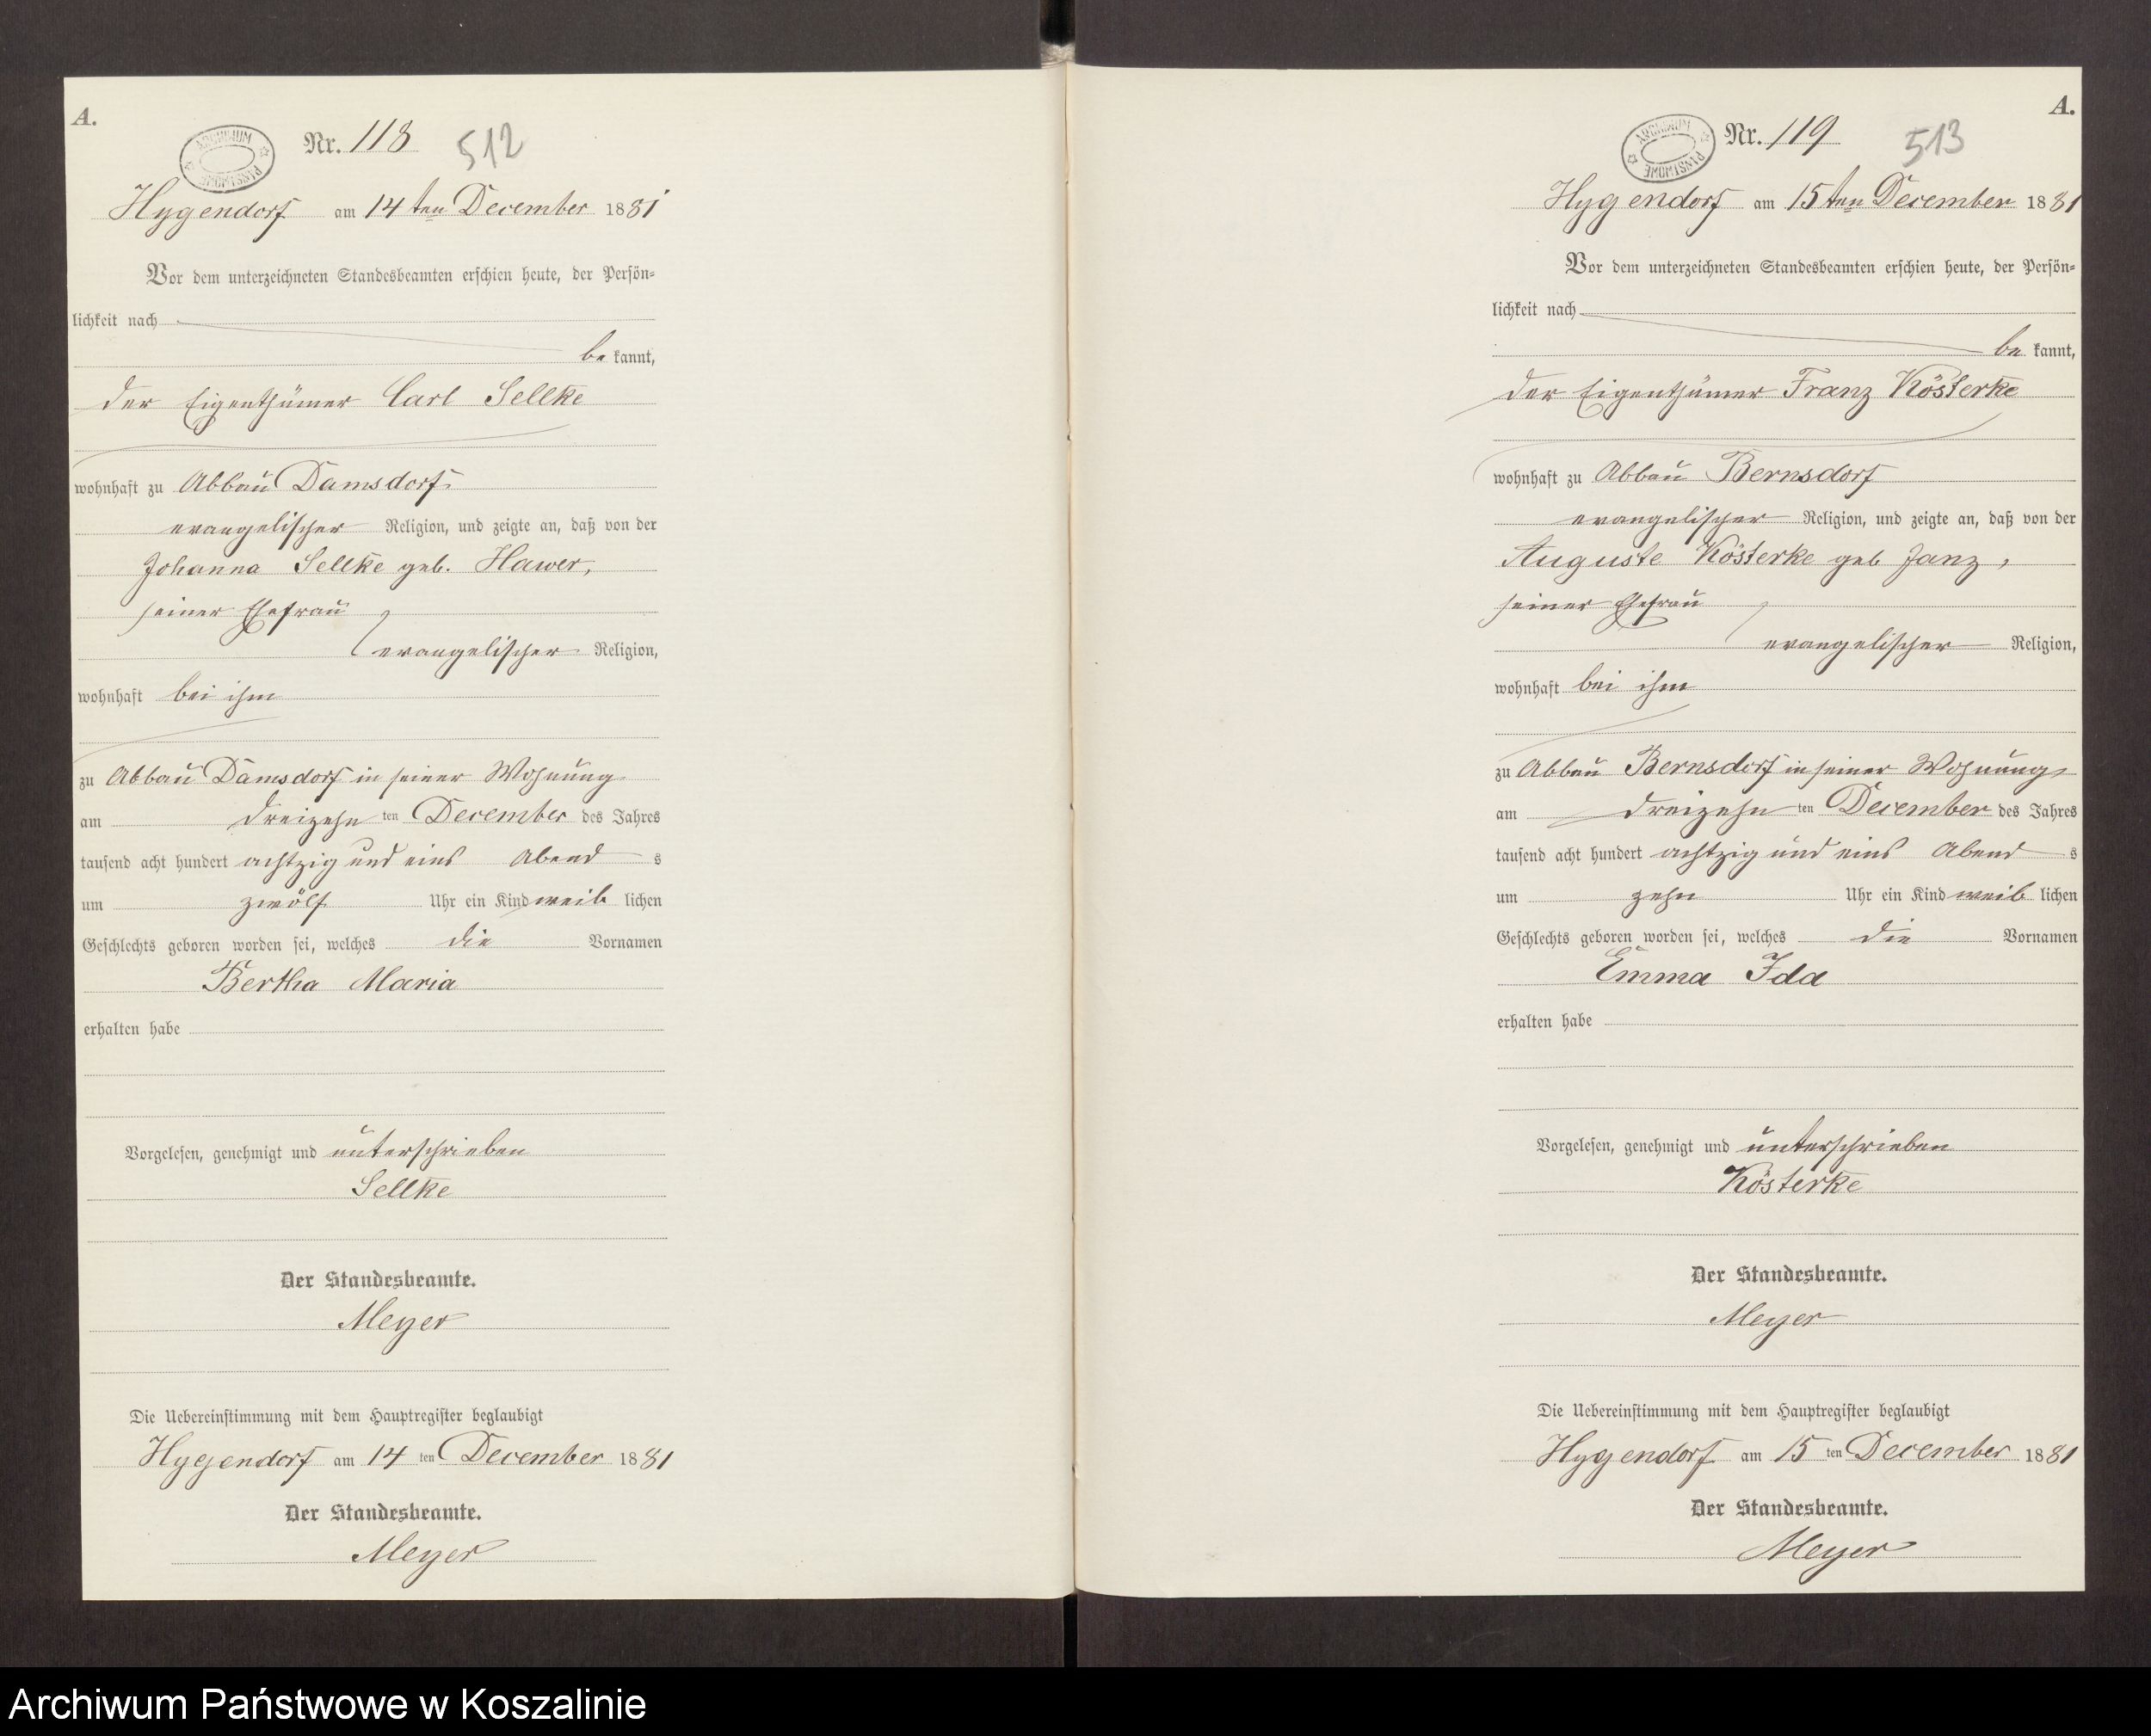 A.
ARCHIWUM PAŃSTWOWE
Nr. 118 512
Hygendorf am 14ten December 1881
Vor dem unterzeichneten Standesbeamten erschien heute, der Persön-
lichkeit nach
be kannt,
der Eigenthümer Carl Sellke
wohnhaft zu Abbau Damsdorf
evangelischer Religion, und zeigte an, daß von der
Johanna Sellke geb. Hawer,
seiner Ehefrau
evangelischer Religion,
wohnhaft bei ihm
zu Abbau Damsdorf in seiner Wohnung
am dreizehn ten December des Jahres
tausend acht hundert achtzig und eins Abend s
um zwölf Uhr ein Kind weib lichen
Geschlechts geboren worden sei, welches die Vornamen
Bertha Maria
erhalten habe
Vorgelesen, genehmigt und unterschrieben
Sellke
Der Standesbeamte.
Meyer
Die Uebereinstimmung mit dem Hauptregister beglaubigt
Hygendorf am 14 ten December 1881
Der Standesbeamte.
Meyer
A.
ARCHIWUM PAŃSTWOWE
Nr. 119 513
Hygendorf am 15ten December 1881
Vor dem unterzeichneten Standesbeamten erschien heute, der Persön-
lichkeit nach
be kannt,
der Eigenthümer Franz Kösterke
wohnhaft zu Abbau Bernsdorf
evangelischer Religion, und zeigte an, daß von der
Auguste Kösterke geb Janz,
seiner Ehefrau
evangelischer Religion,
wohnhaft bei ihm
zu Abbau Bernsdorf in seiner Wohnung
am dreizehn ten December des Jahres
tausend acht hundert achtzig und eins Abend s
um zehn Uhr ein Kind weib lichen
Geschlechts geboren worden sei, welches die Vornamen
Emma Ida
erhalten habe
Vorgelesen, genehmigt und unterschrieben
Kösterke
Der Standesbeamte.
Meyer
Die Uebereinstimmung mit dem Hauptregister beglaubigt
Hygendorf am 15 ten December 1881
Der Standesbeamte.
Meyer
Archiwum Państwowe w Koszalinie